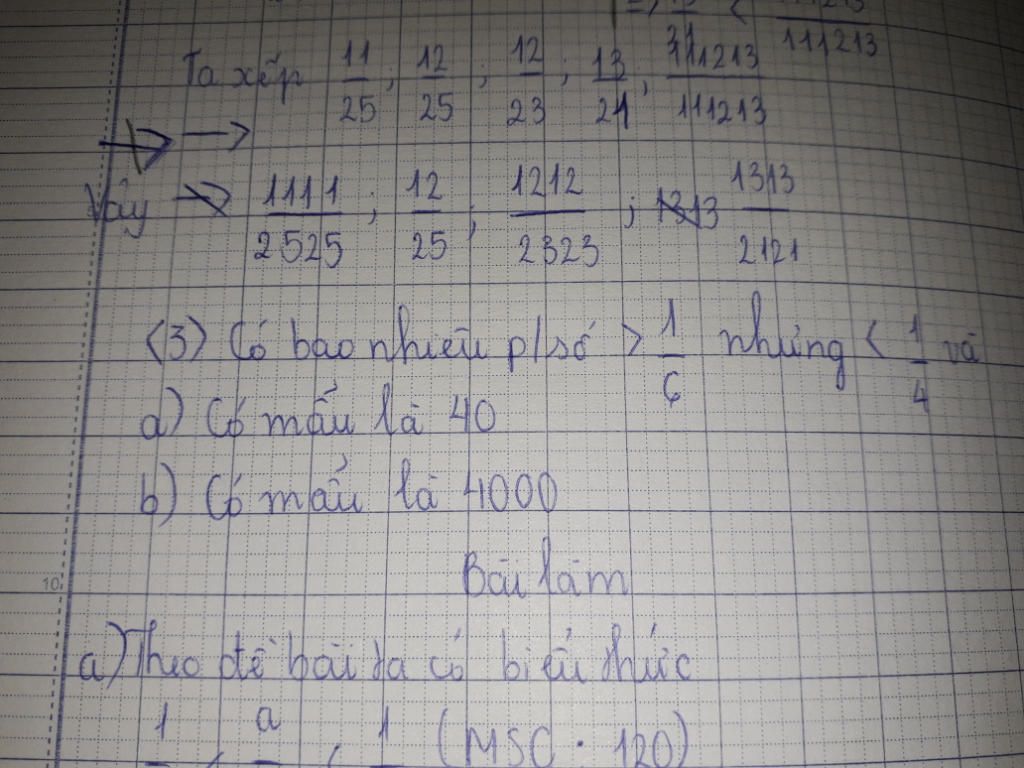 111213
Ta xếp 11/25 ; 12/25 ; 12/23 ; 13/21 ; 111213/111213
Vậy → 1111/2525 ; 12/25 ; 1212/2323 ; 1313/2121
(3) Có bao nhiêu p/số > 1/6 nhưng < 1/4 và
a) Có mẫu là 40
b) Có mẫu là 4000
Bài làm
10
a) Theo đề bài ta có biểu thức
1 < a < 1 (MSC : 120)